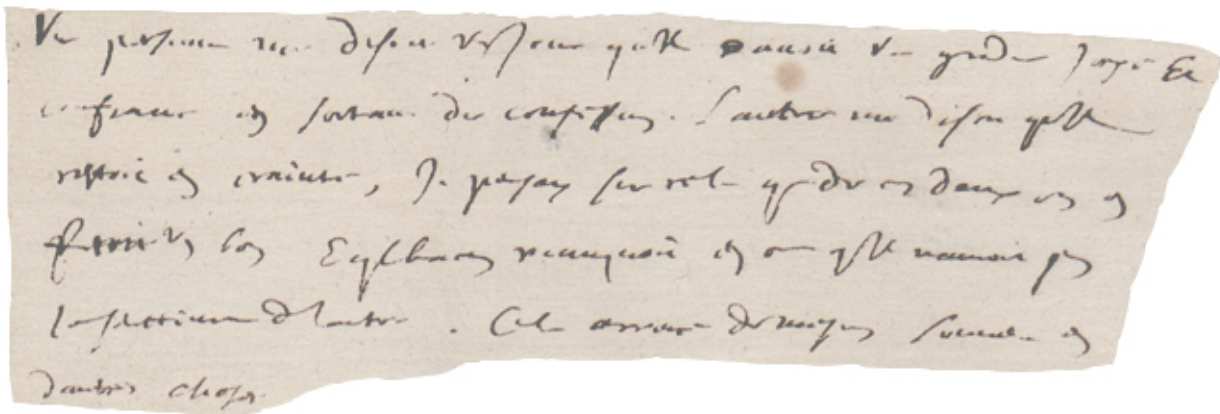 Vne personne me disoit un jour qu'il auoit Vne grande Joye Et
confiance en sortant de confession. L'autre me disoit qu'il
restoit en crainte, Je pensay sur cela que de ces deux on en
feroit Vn bon Et que chacun manquoit en ce qu'il n'auoit pas
le sentiment de l'autre. Cela arriue de mesme souuent en
d'autres choses.